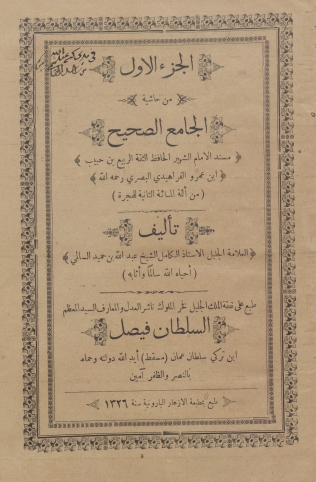 الجزء الاول
من حاشية
الجامع الصحيح
مسند الامام الشهير الحافظ الثقة الربيع بن حبيب
ابن عمرو الفراهيدي البصري رحمه الله
( من أئمة المائة الثانية للهجرة )
تأليف
العلامة الجليل الاستاذ الكامل الشيخ عبد الله بن حميد السالمي
( أحياه الله سالمًا وأثابه )
طبع على نفقة الملك الجليل فخر الملوك ناشر العدل والمعارف السيد المعظم
السلطان فيصل
ابن تركي سلطان عمان ( مسقط ) أيد الله دولته وحماه
بالنصر والظفر آمين
طبع بمطبعة الازهار البارونية سنة ١٣٢٦